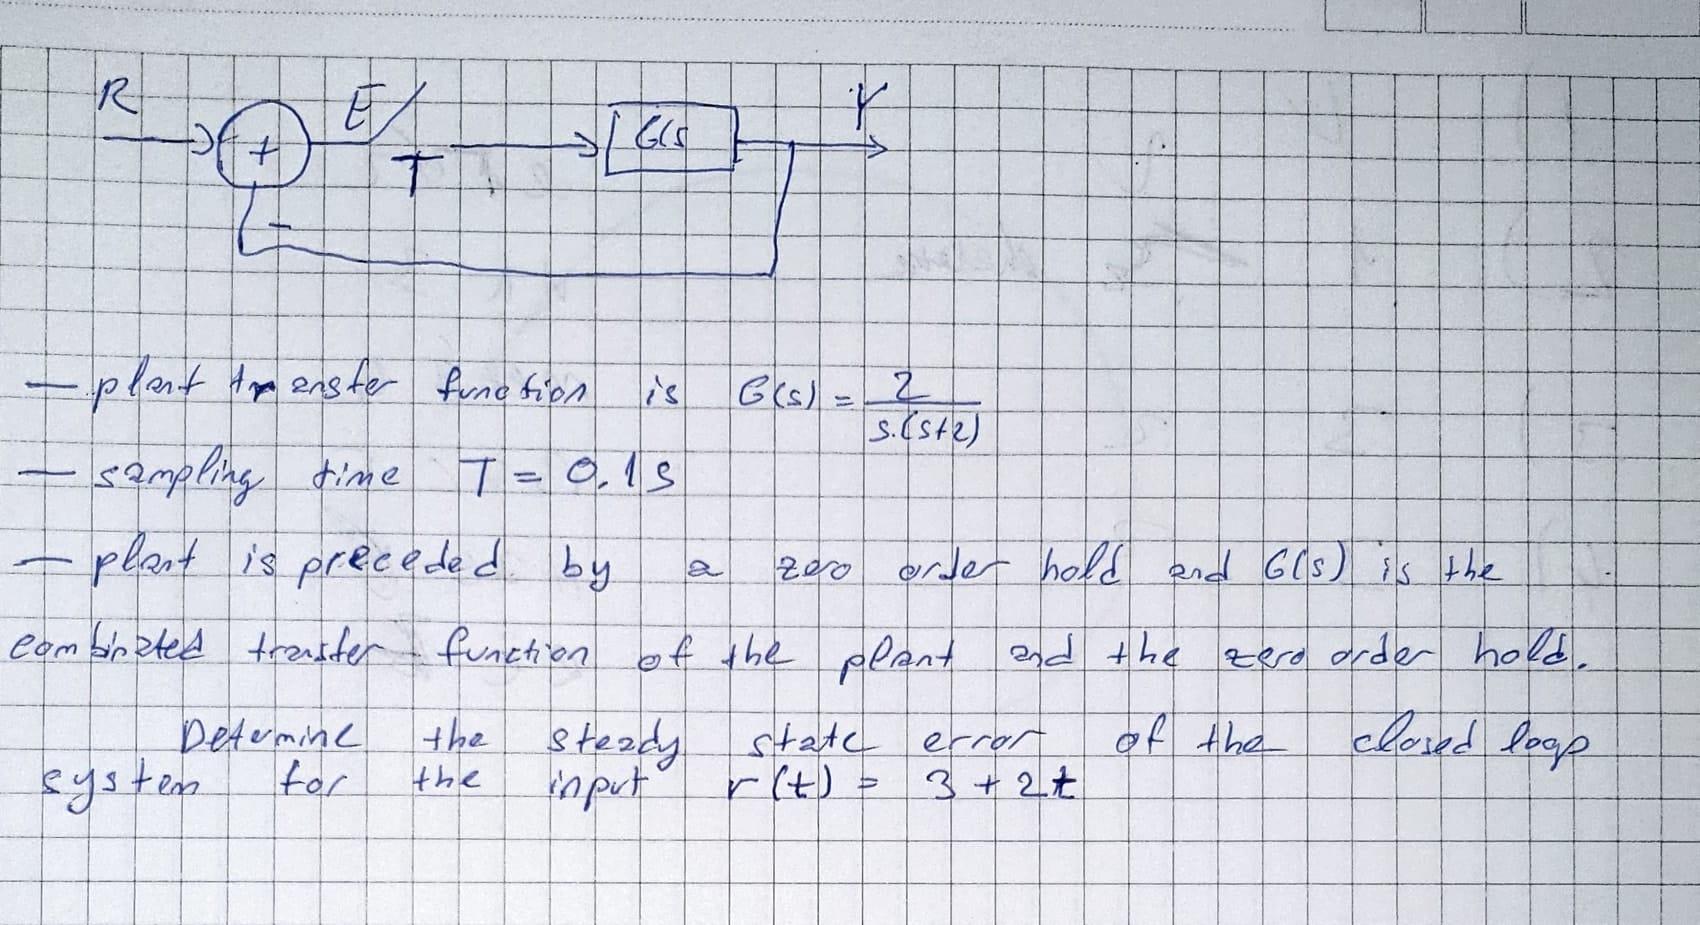 R E Y
+ T G(s
-
- plant transfer function is G(s) = 2 / s.(s+2)
- sampling time T = 0.1s
- plant is preceded by a zero order hold and G(s) is the
combinated transfer function of the plant and the zero order hold.
Detemine the steady state error of the closed loop
system for the input r(t) = 3 + 2t